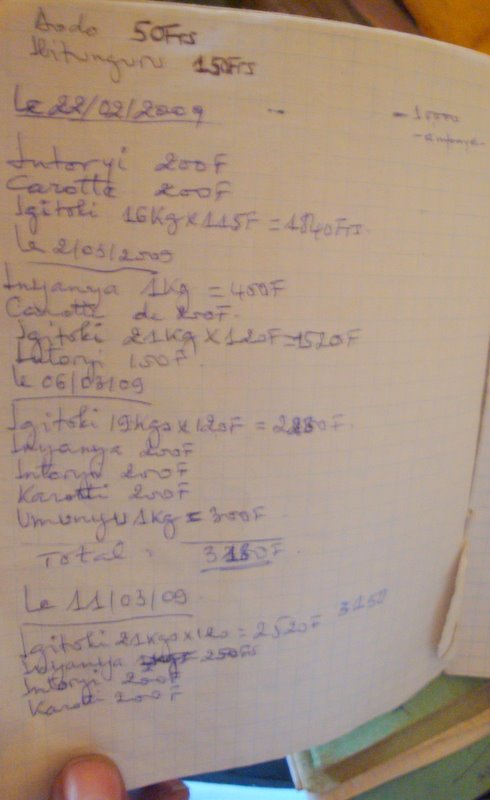 Dodo 50Frs
Ibitunguru 150Frs
Le 22/02/2009
- 1000
Intoryi 200F
Carotte 200F
Igitoki 16Kg x 115F = 1840Frs.
Le 2/03/2009
Inyanya 1Kg = 400F
Carotti de 200F.
Igitoki 21Kg x 120F = 1520F
Intoryi 150F
Le 06/03/09
Igitoki 19Kgs x 120F = 2280F.
Inyanya 200F
Intoryi 200F
Karotti 200F
Umunyu 1Kg = 300F
Total : 3180F
Le 11/03/09
3150
Igitoki 21Kgs x 120 = 2520F
Inyanya 250Frs
Intoryi 200F
Karotti 200F